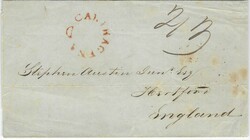 2/3
Stephen Austen Junr. Esq
Hertford
England